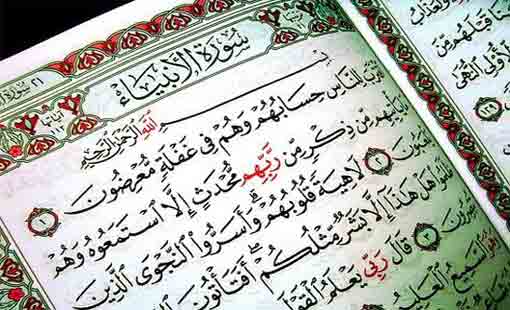 سُورَةُ الْأَنْبِيَاءِ
بِسْمِ اللَّهِ الرَّحْمَٰنِ الرَّحِيمِ
اقْتَرَبَ لِلنَّاسِ حِسَابُهُمْ وَهُمْ فِي غَفْلَةٍ مُّعْرِضُونَ ١
يَأْتِيهِم مِّن ذِكْرٍ مِّن رَّبِّهِم مُّحْدَثٍ إِلَّا اسْتَمَعُوهُ وَهُمْ
يَلْعَبُونَ ٢ لَاهِيَةً قُلُوبُهُمْ وَأَسَرُّوا النَّجْوَى الَّذِينَ
ظَلَمُوا هَلْ هَٰذَا إِلَّا بَشَرٌ مِّثْلُكُمْ أَفَتَأْتُونَ
تُبْصِرُونَ ٣ قَالَ رَبِّي يَعْلَمُ الْقَوْلَ
السَّمِيعُ الْعَلِيمُ
قَبْلَهُم مِّنَ
أُولِي النُّهَىٰ